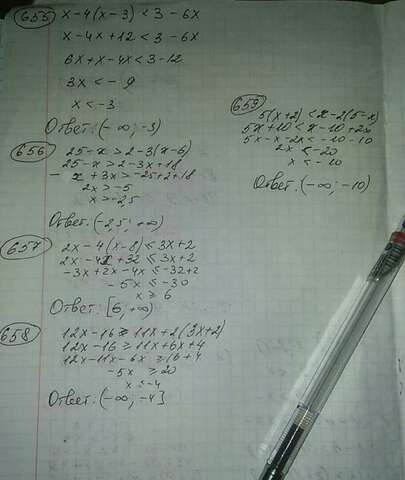 655 x-4(x-3) < 3-6x
x-4x+12 < 3-6x
6x+x-4x < 3-12
3x < -9
x < -3
Ответ: (-∞; -3)
656 25-x > 2-3(x-6)
25-x > 2-3x+18
-x+3x > -25+2+18
2x > -5
x > -2,5
Ответ: (-2,5; +∞)
657 2x-4(x-8) ≤ 3x+2
2x-4x+32 ≤ 3x+2
-3x+2x-4x ≤ -32+2
-5x ≤ -30
x ≥ 6
Ответ: [6; +∞)
658 12x-16 ≥ 11x+2(3x+2)
12x-16 ≥ 11x+6x+4
12x-11x-6x ≥ 16+4
-5x ≥ 20
x ≤ -4
Ответ: (-∞; -4]
659 5(x+2) < x-2(5-x)
5x+10 < x-10+2x
5x-x-2x < -10-10
2x < -20
x < -10
Ответ: (-∞; -10)